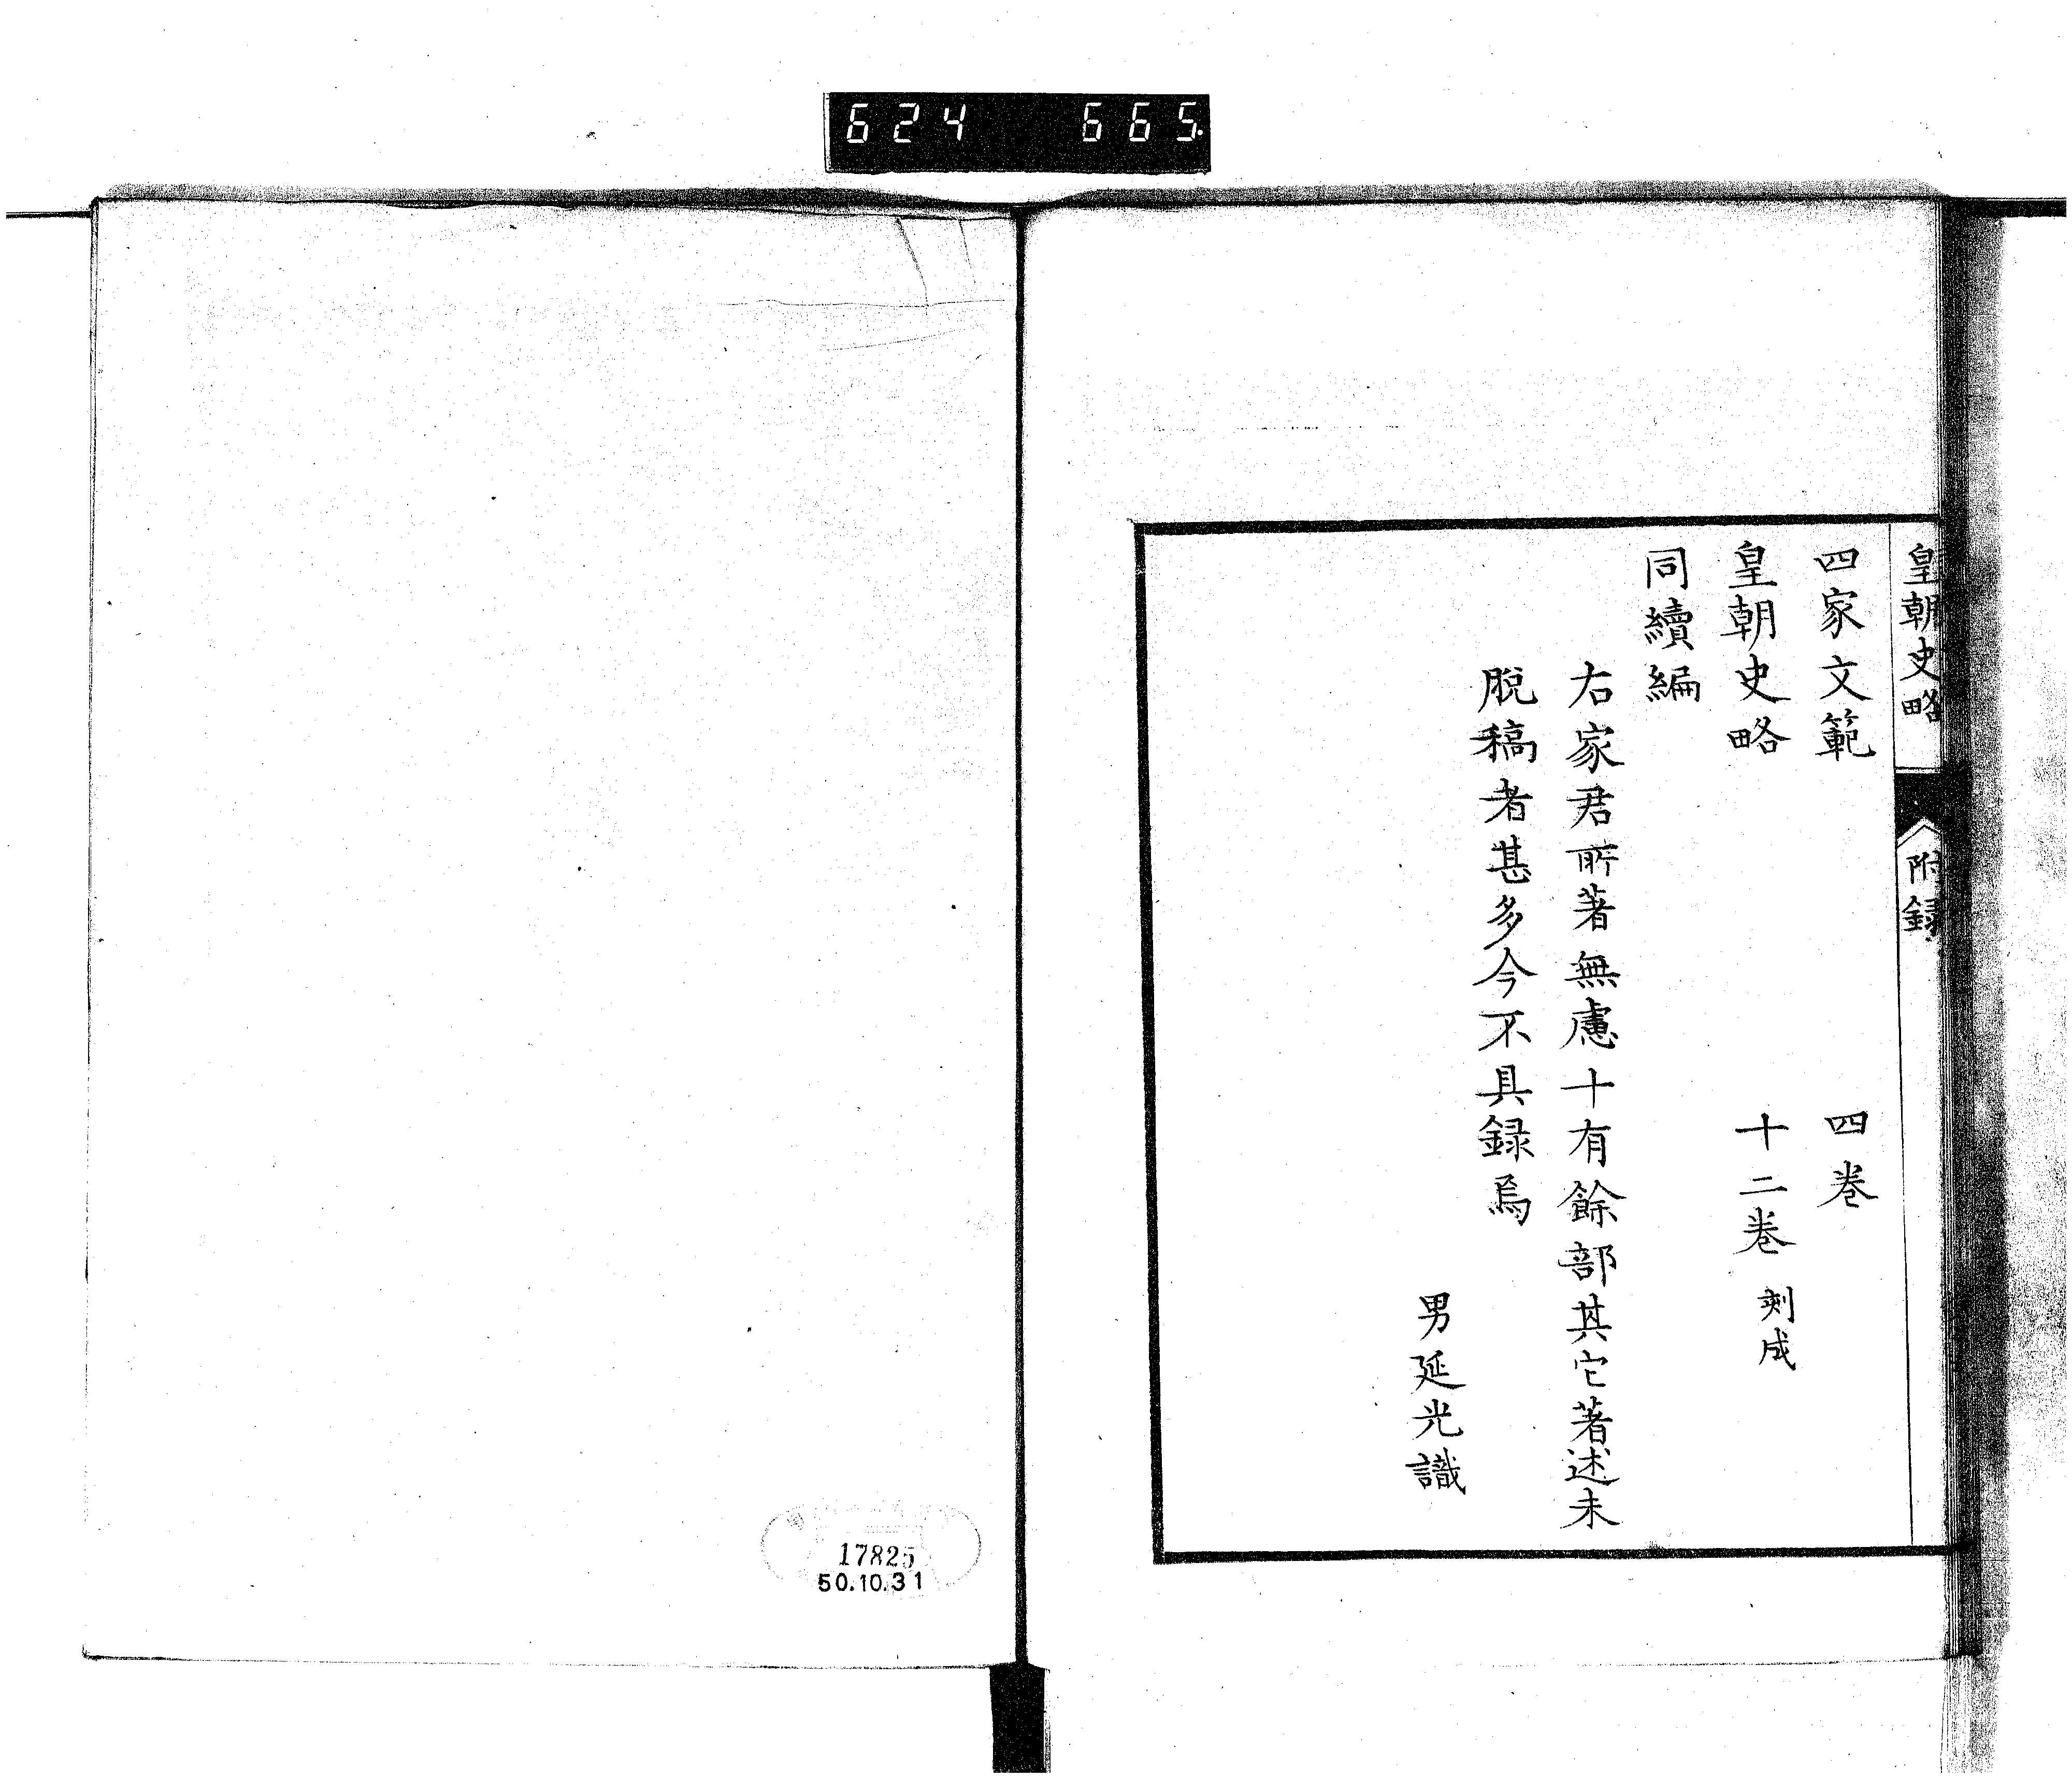 624 665
皇朝史略 附録
四家文範 四巻
皇朝史略 十二巻 刻成
同續編
右家君所著無慮十有餘部其它著述未
脱稿者甚多今不具録焉
男延光識
17825
50.10.31